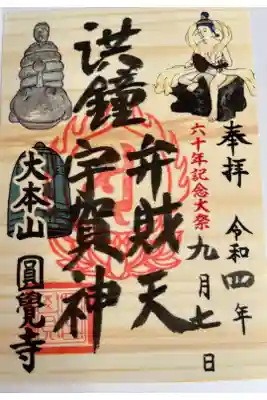 奉拝 令和四年
九月七日
六十年記念大祭
弁財天
洪鐘
宇賀神
大本山 圓覺寺